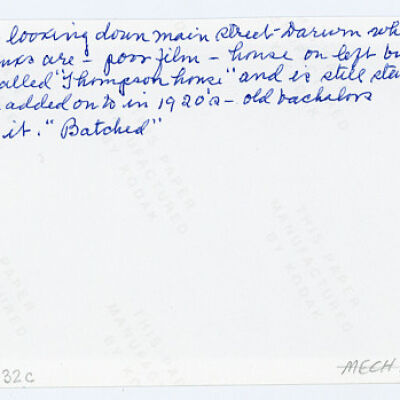 looking down main street Darwin wh
nks are - poor film - house on left bu
alled "Thompson house" and is still sta
added on to in 1920's - old bachelors
it. "Batched"
THIS PAPER
MANUFACTURED
BY KODAK
THIS PAPER
MANUFACTURED
BY KODAK
THIS PAPER
MANUFACTURED
BY KODAK
32c
MECH